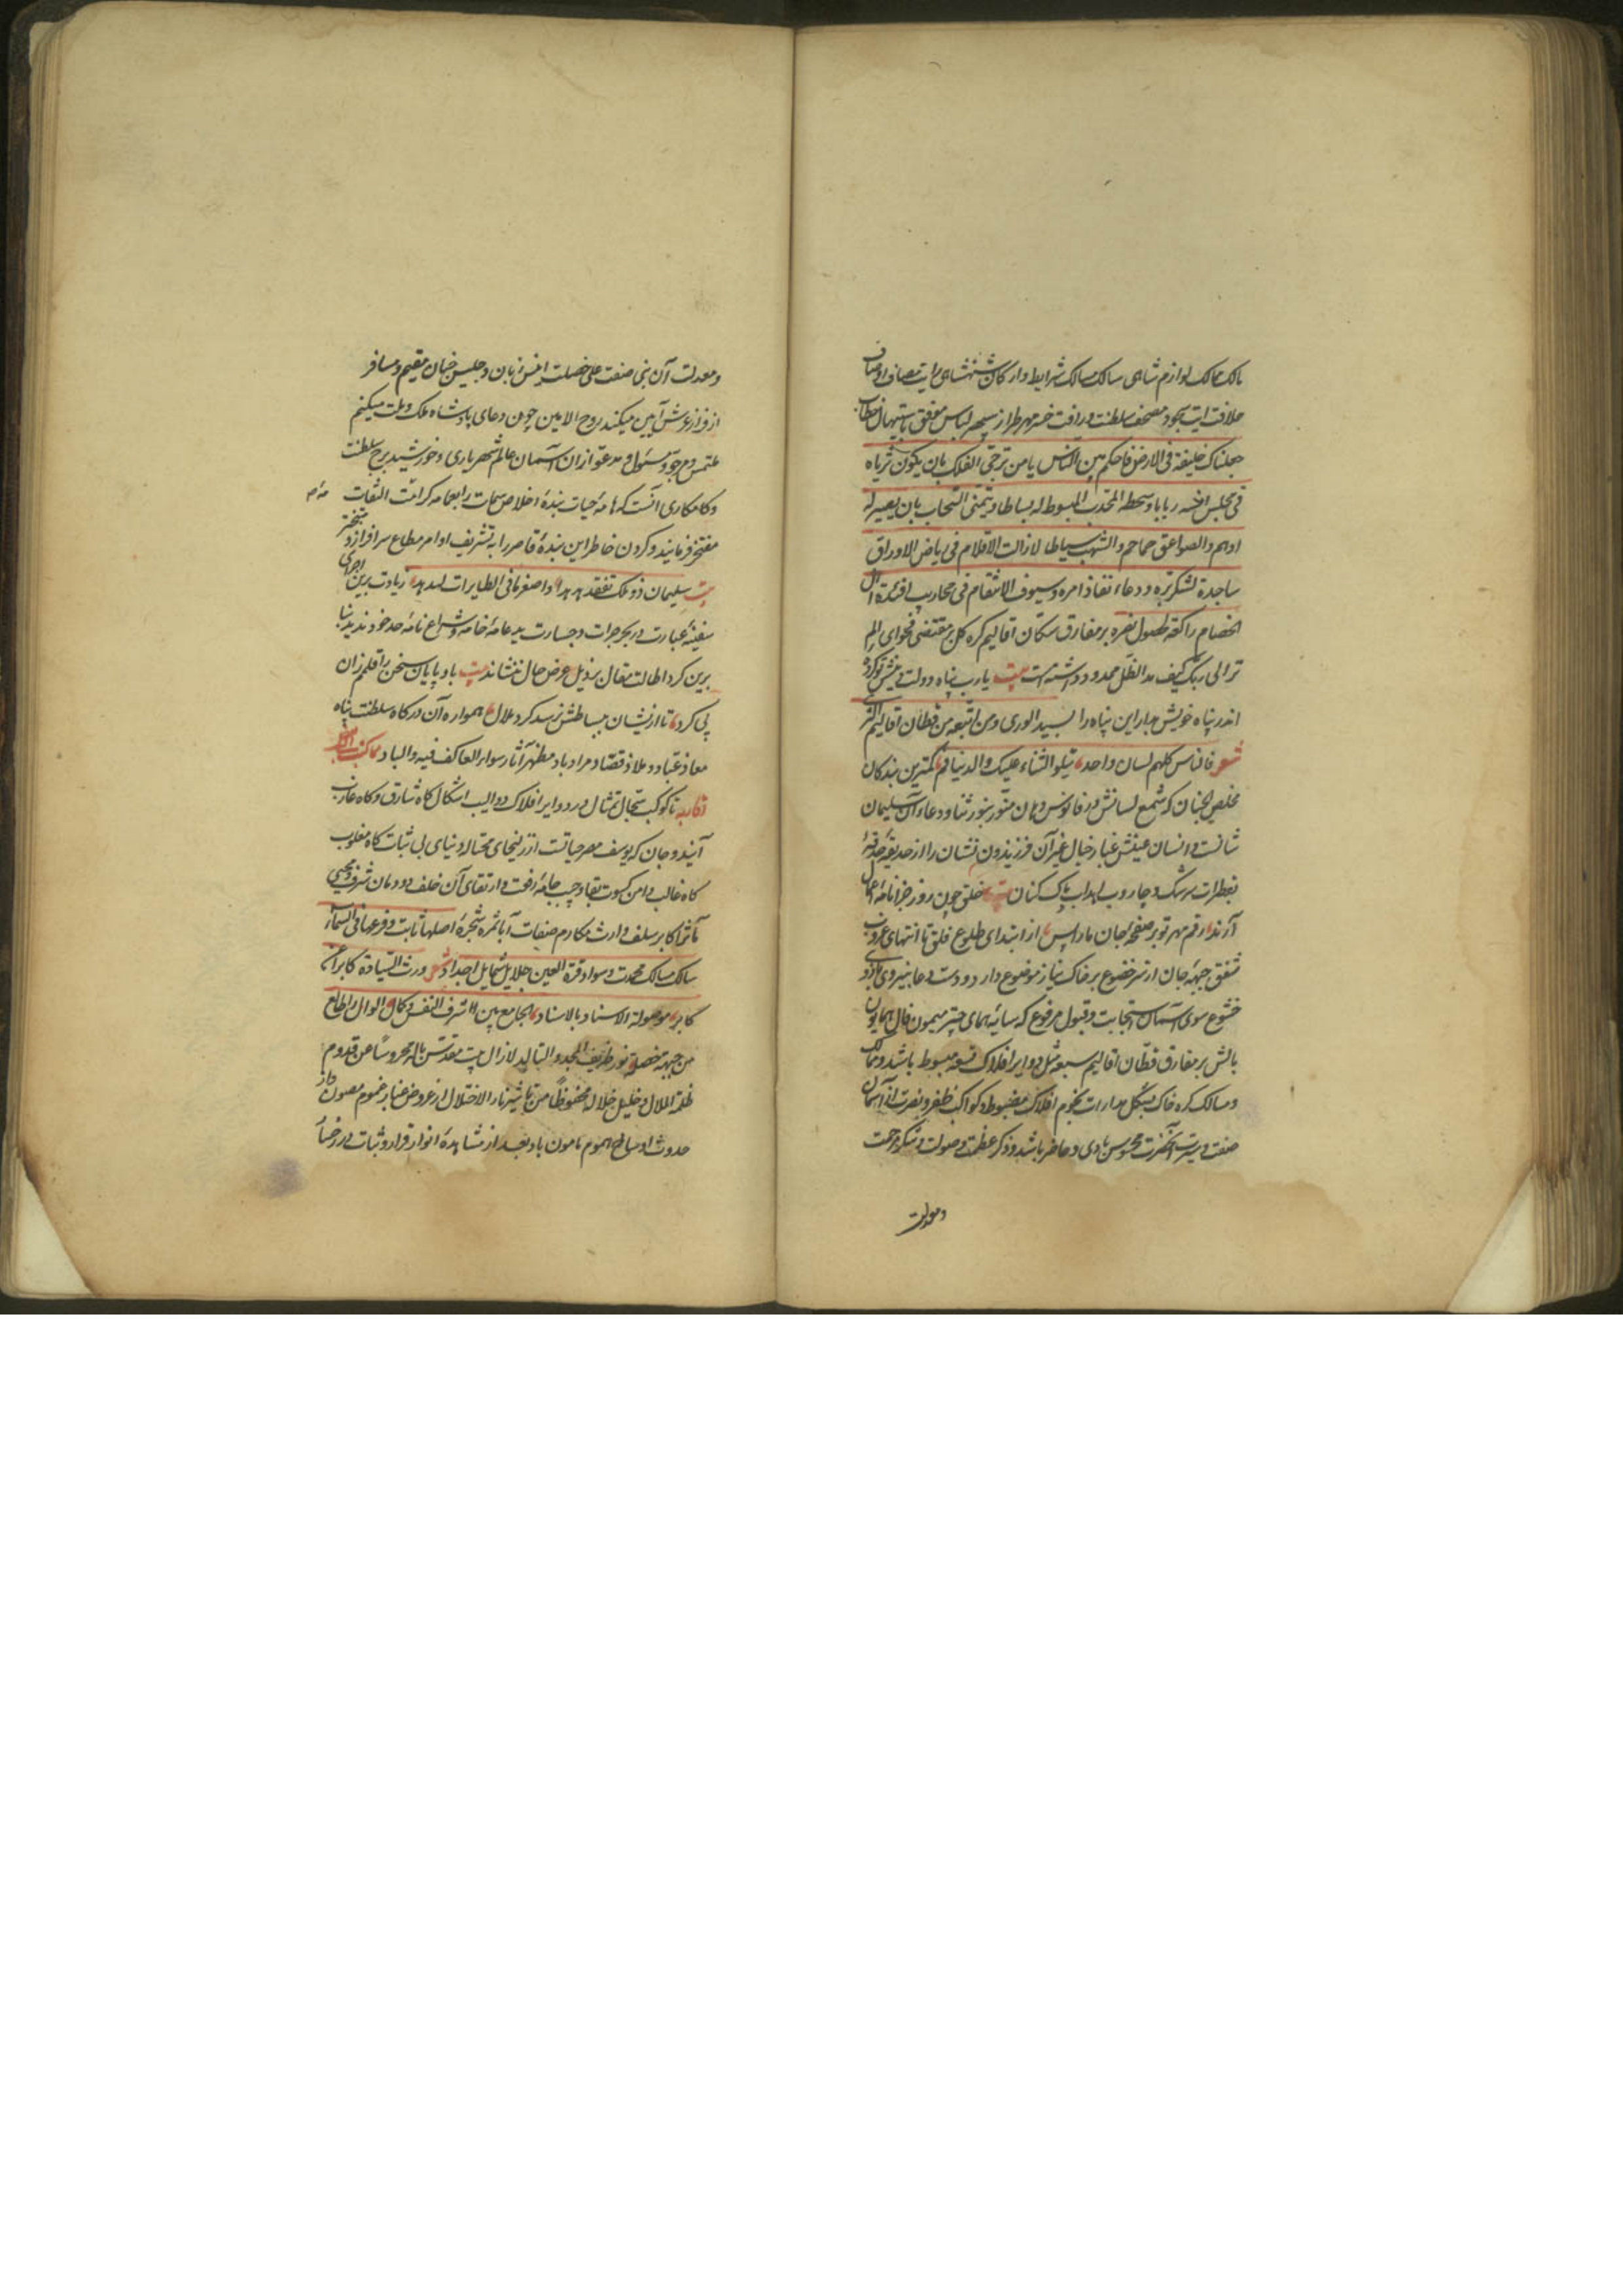 مالک ممالک لوازم شاهی سالک مسالک شرایط و ارکان شهنشاهی رایت مصاف اوصاف
خلافت آیت سجود مصحف سلطنت و رأفت خسرو مهر طراز سپهر لباس موفق باستیهال خطاب
جعلناک خلیفة فی الارض فاحکم بین الناس یا من ترجی الفلک بان یکون ثریاه
فی مجلس انسه ربابا وسطحه المحدب المبسوط له بساطا ویتمنی السحاب بان یصیر له
ادهم والصواعق حماحم والشهب سیاطا لازالت الاقلام فی ریاض الاوراق
ساجدة لشکر بره ودعاء نفاذ امره وسیوف الانتقام فی محاریب افئدة ال
الخصام راکعة لحصول نصره بر مفارق سکان اقالیم کره کل بر مقتضی فحوای الم
تر الی ربک کیف مد الظل ممدود داشته است بیت یا رب پناه دولت ودینش تو کرده
اندر پناه خویش بدار این پناه را بسید الوری ومن اتبعه من قطان اقالیم الثری
شعر فالناس کلهم لسان واحد یتلو الثناء علیک والدنیا فم کمترین بندکان
مخلص الجنان که شمع لسانش در فانوس دهان منور بنور ثنا ودعاء آن سلیمان
شانست وانسان عینش غبار خیال غیر آن فریدون نشان را از حدیقه حدقه
بقطرات سرشک وجاروب اهداب پاک کنان بیت خلق چون روز جزا نامه اعمال
آرند رقم مهر تو بر صفحه جان ما را بس از ابتدای طلوع فلق تا انتهای غروب
شفق جبهه جان از سر خضوع بر خاک نیاز موضوع دارد ودست دعا بنیروی بازوی
خشوع سوی آسمان استجابت وقبول مرفوع که سایه همای چتر میمون فال همایون
بالش بر مفارق قطان اقالیم سبعه مثل دوایر افلاک تسعه مبسوط باشد وممالک
ومسالک کره خاک بشکل مدارات نجوم افلاک مضبوط وکواکب ظفر ونصرت از آسمان
صفت وسیرت آنحضرت محسوس بادی وحاضر باشد وذکر عظمت وصولت وشکر مرحمت
ومعدلت
ومعدلت آن نبی صفت علی خصلت انیس زبان وجلیس جنان مقیم ومسافر
از فراز عرش آمین میکند روح الامین چون دعای پادشاه ملک وملت میکنم
ملتمس ومرجو ومسئول ومدعو از ان آسمان عالم شهریاری وخورشید برج سلطنت
وکامکاری آنست که نامه حیات بنده اخلاص سمات را بعمامه کرامت التفات
مفتخر فرمایند وکردن خاطر این بنده قاصر را به تشریف اوامر مطاع سرافراز ومتبختر
بیت سلیمان ذو ملک تفقد هدهدا واصغر ما فی الطایرات هدهد زیادت برین اجرای
سفینه عبارت در بحر جرات وجسارت بید عامه خامه وشراع نامه حد خود ندید بنا
برین کرد اطالت مقال بر ذیل عرض حال ننشاند بیت باد پایان سخن را قلمم زان
پی کرد تا از یشان ببساطش نرسد کرد ملال همواره آن درکاه سلطنت پناه
معاذ عباد وملاذ قصاد مراد باد ومظهر آثار سواء العاکف فیه والباد
تا کوکب سجال تمثال در دوایر افلاک دوالیب اشکال کاه شارق وکاه غارب
آیند وجان که یوسف مصر حیاتست از زلیخای محتاله دنیای بی ثبات کاه مغلوب
کاه غالب دامن کسوت بقا وجیب جامه رفعت وارتقای آن خلف دودمان شرف
مآثر اکابر سلف وارث مکارم صفات آبا ثمره شجره اصلها ثابت وفرعها فی السماء
سالک مسالک محمدت وسداد قرة العین جلایل شمایل اجداد شعر ورث السیادة کابرا عن
کابر موصولة الاسناد بالاسناد الجامع بین شرف النفس وکمال
من جهة مخصه نور طریف المجد والتالید لازال بیت مقدس باله محروسا عن قدوم
ظلمة الملال وخلیل خلاله محفوظا من تاثیر نار الاختلال از عروض غبار غموم مصون واز
حدوث امواج هموم مامون باد بعد از مشاهده انوار قرار وثبات در